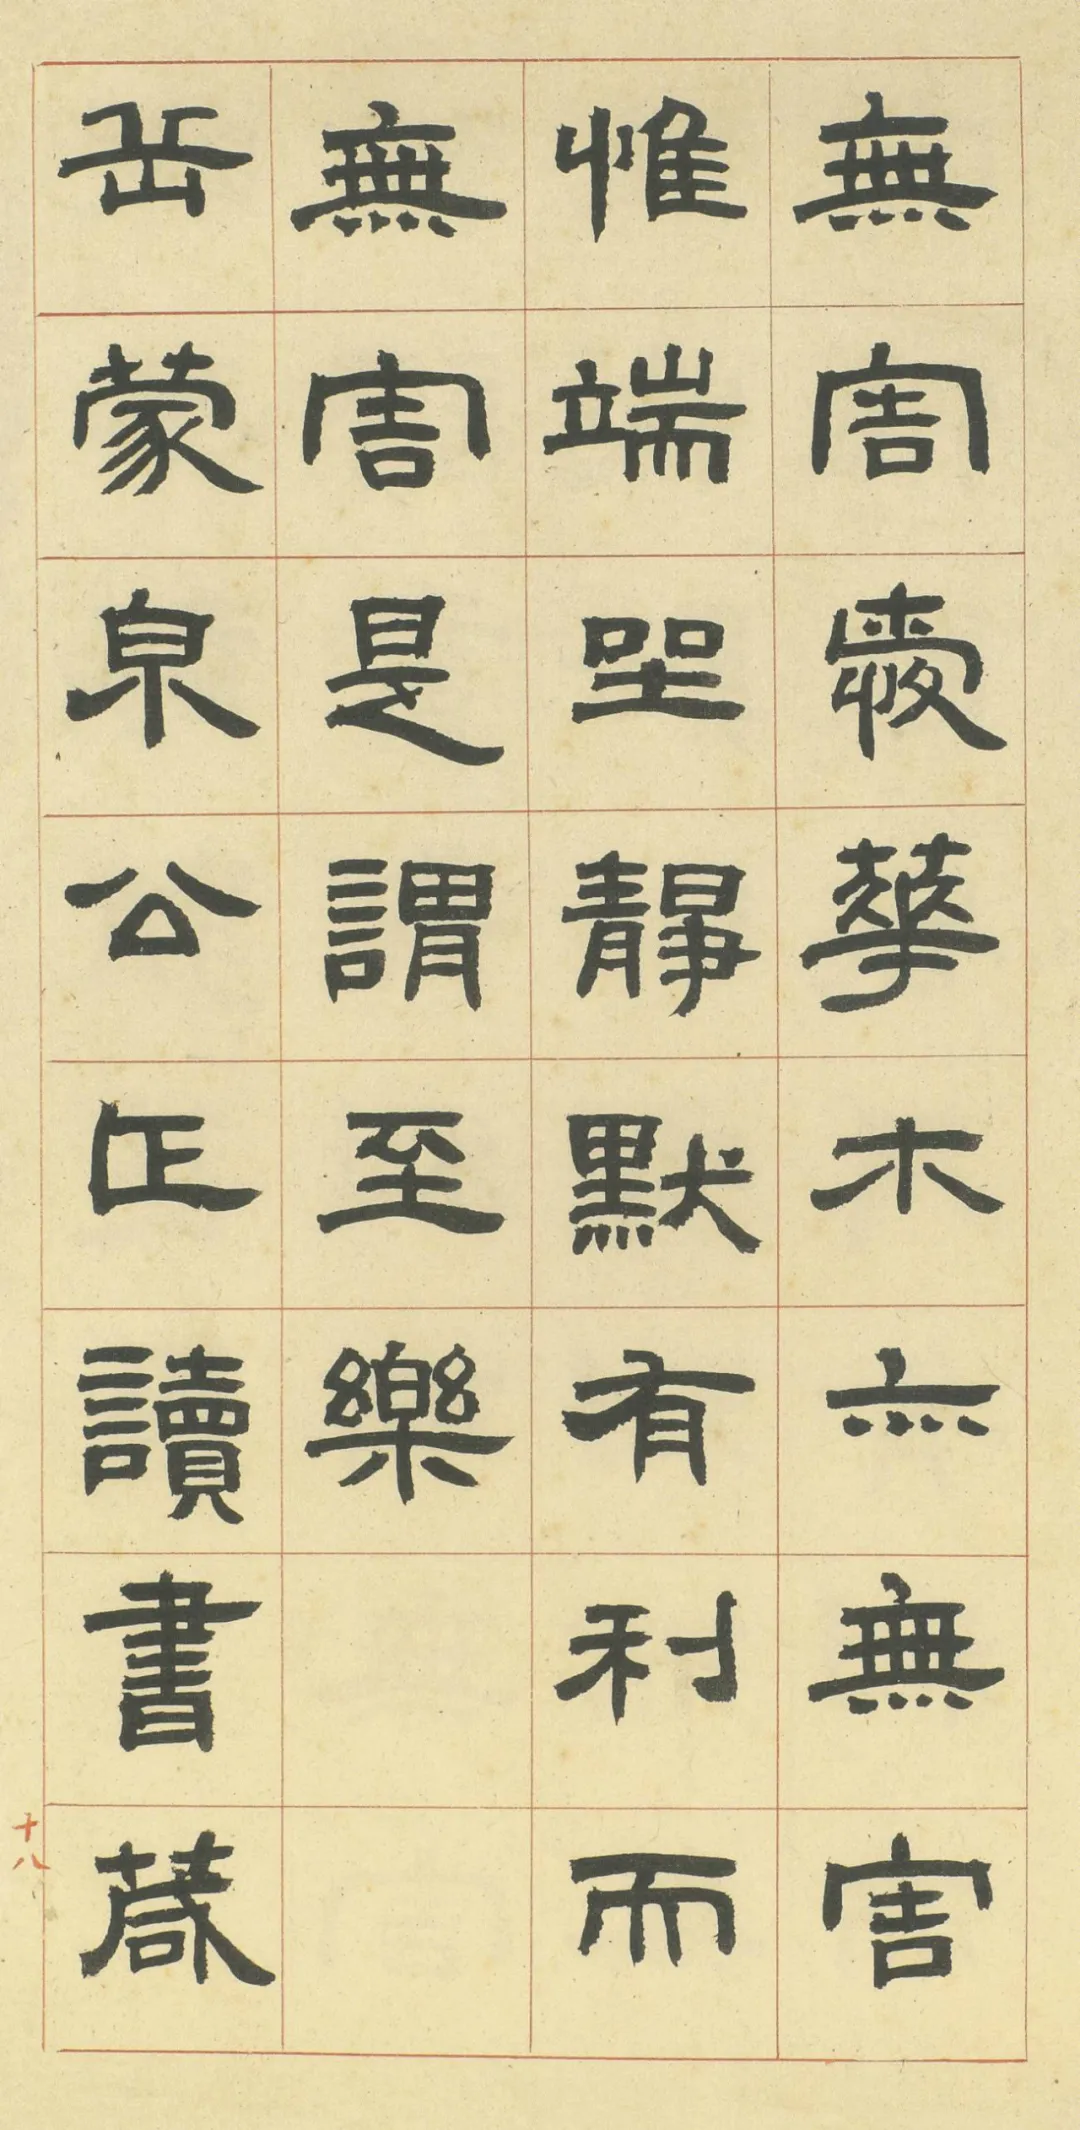 無害愛華木亦無害
惟端坐靜默有利而
無害是謂至樂
岳蒙泉公正讀書箴
十八